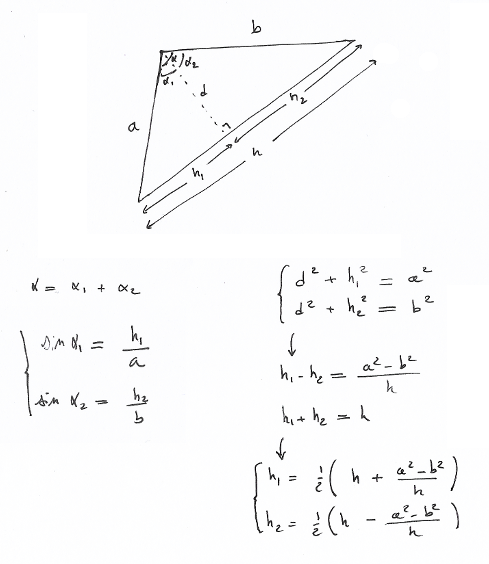 b
α α₂
α₁
d
a
h₂
h₁
h
α = α₁ + α₂
sin α₁ = h₁/a
sin α₂ = h₂/b
d² + h₁² = a²
d² + h₂² = b²
↓
h₁ - h₂ = (a² - b²)/h
h₁ + h₂ = h
↓
h₁ = ½(h + (a² - b²)/h)
h₂ = ½(h - (a² - b²)/h)